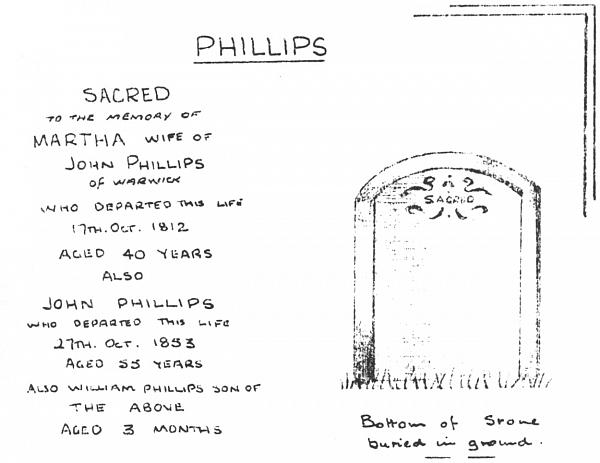 PHILLIPS
SACRED
TO THE MEMORY OF
MARTHA WIFE OF
JOHN PHILLIPS
OF WARWICK
WHO DEPARTED THIS LIFE
17TH. OCT. 1812
AGED 40 YEARS
ALSO
JOHN PHILLIPS
WHO DEPARTED THIS LIFE
27TH. OCT. 1833
AGED 55 YEARS
ALSO WILLIAM PHILLIPS SON OF
THE ABOVE
AGED 3 MONTHS
SACRED
Bottom of Stone
buried in ground.